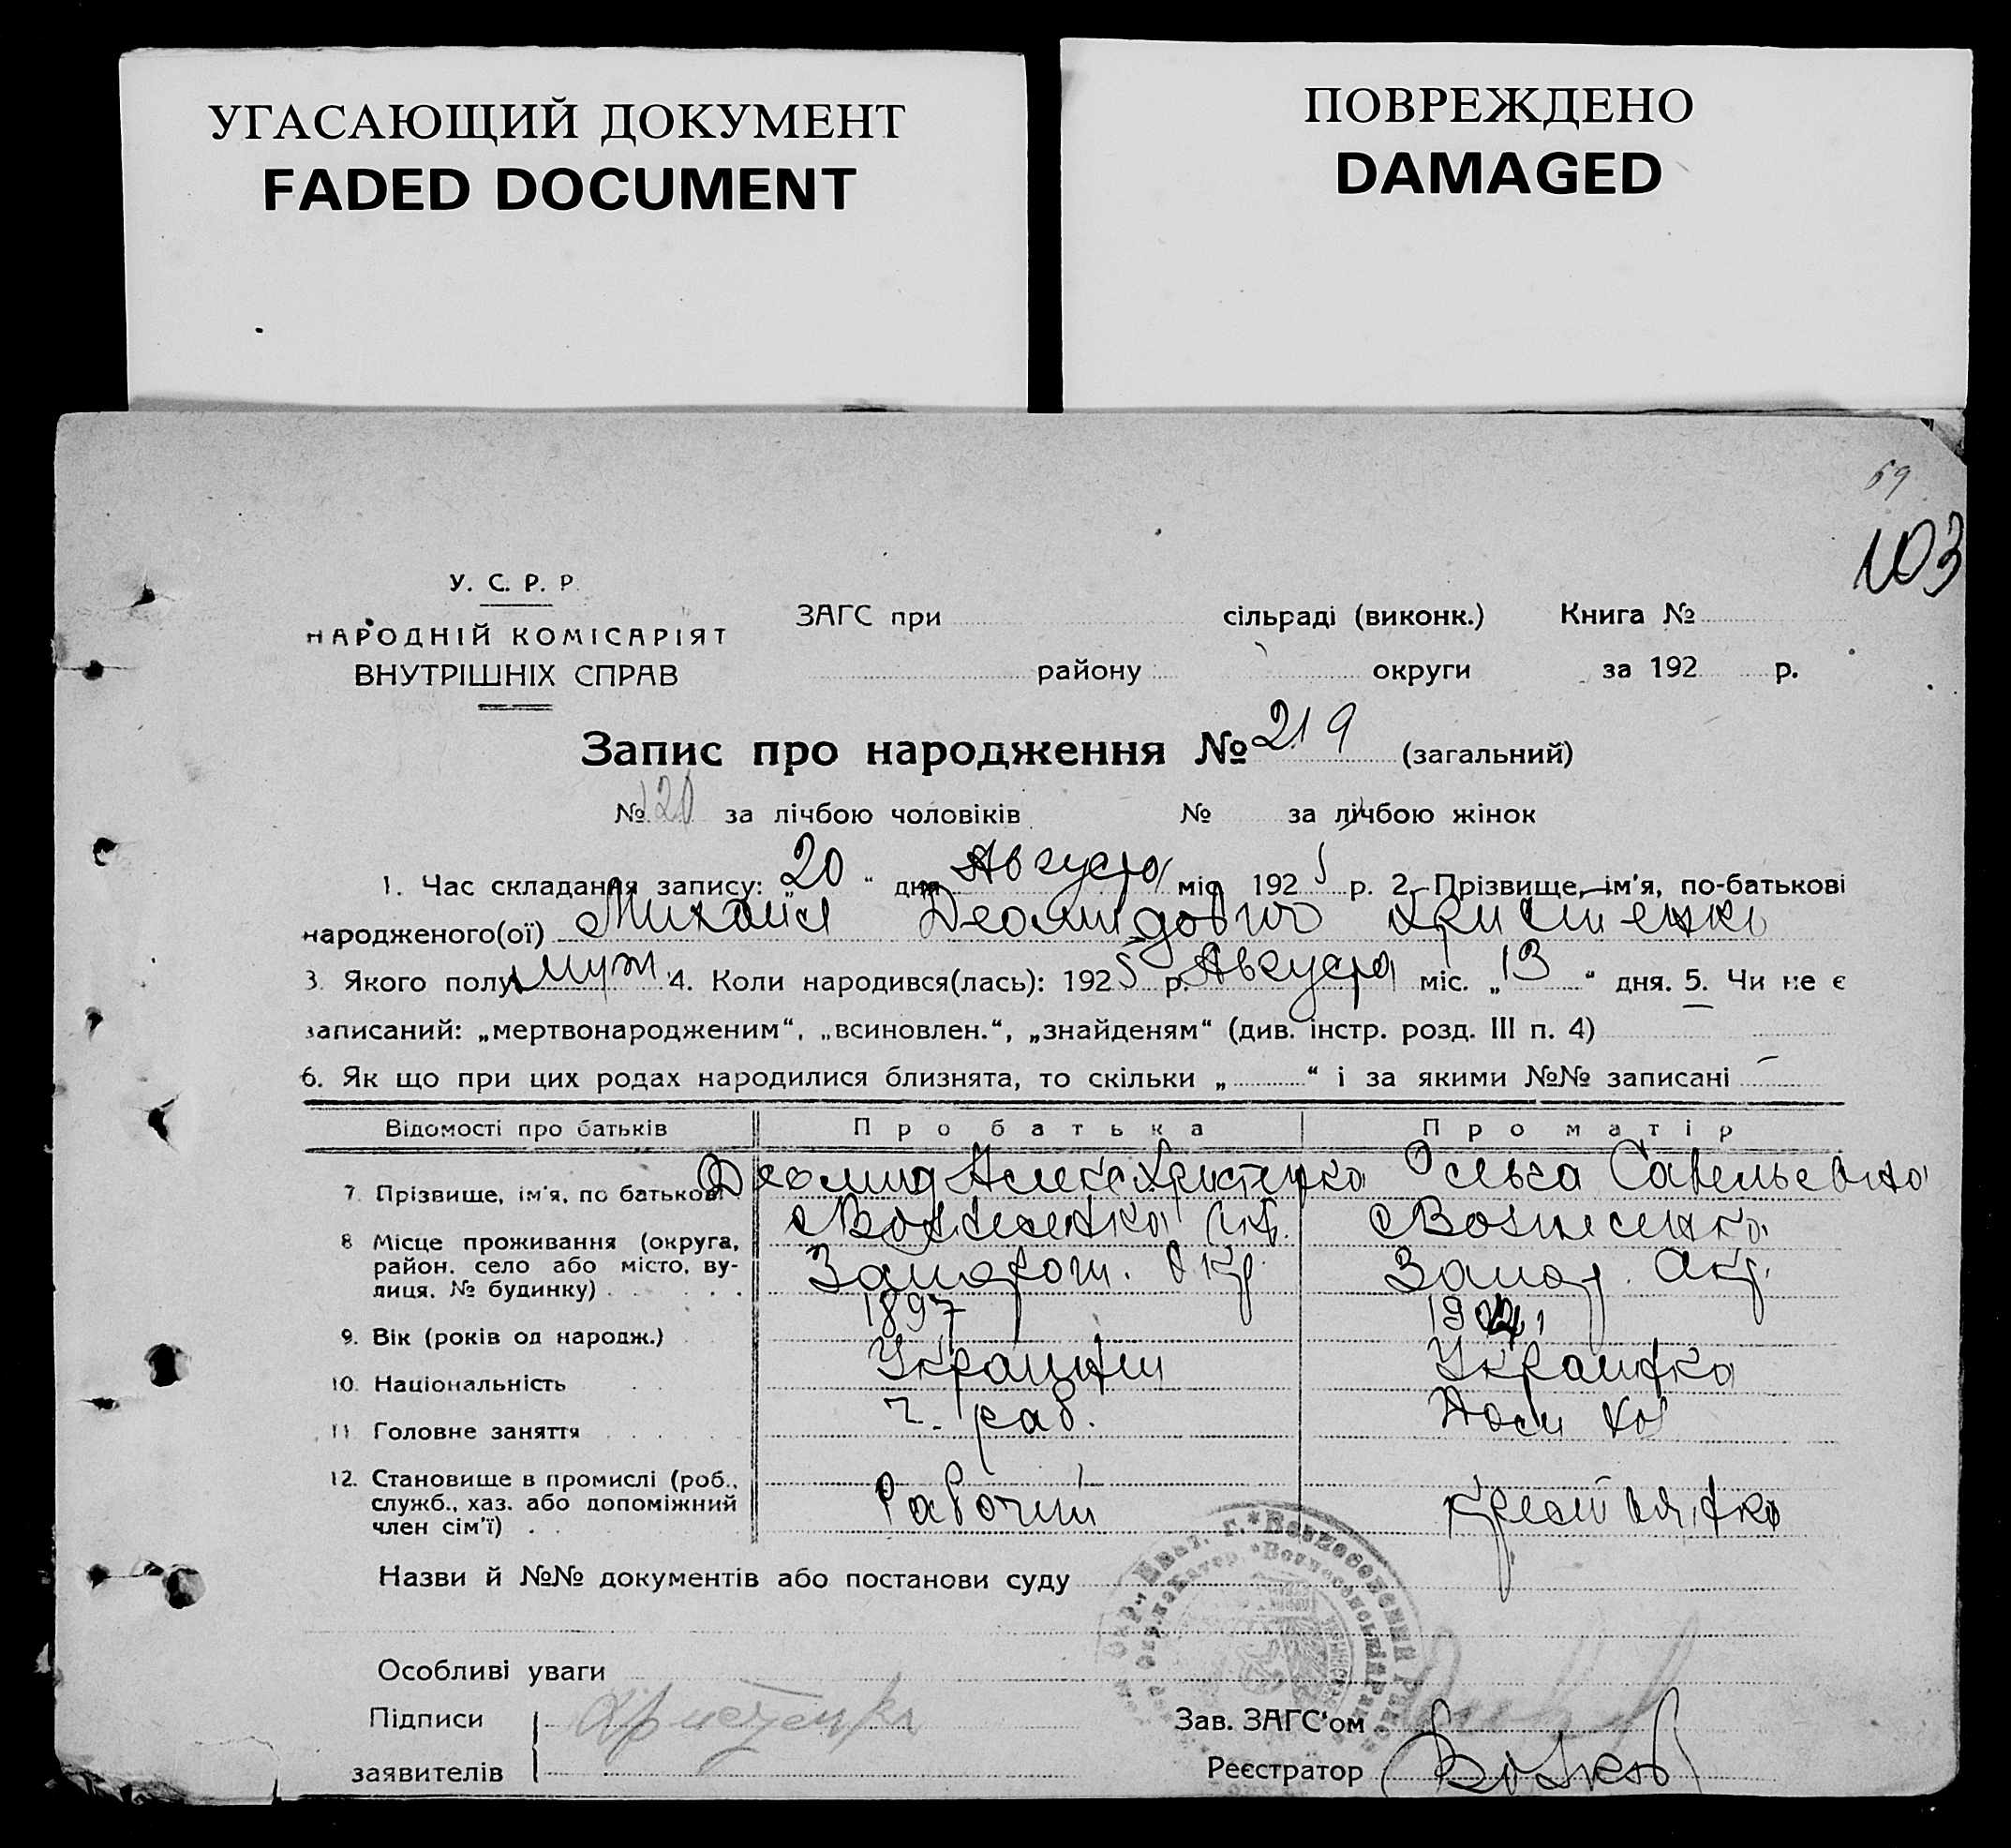 УГАСАЮЩИЙ ДОКУМЕНТ
FADED DOCUMENT
ПОВРЕЖДЕНО
DAMAGED
69
103
У. С. Р. Р.
НАРОДНІЙ КОМІСАРІЯТ
ВНУТРІШНІХ СПРАВ
ЗАГС при сільраді (виконк.) Книга №
району округи за 192 р.
Запис про народження № 219 (загальний)
№ 120 за лічбою чоловіків № за лічбою жінок
1. Час складання запису: „20“ дня Августа міс 1925 р. 2. Прізвище, ім'я, по-батькові
народженого(ої) Михаил Деомидович Христенко
3. Якого полу муж. 4. Коли народився(лась): 1925 р. Августа міс. „13“ дня. 5. Чи не є
записаний: „мертвонародженим“, „всиновлен.“, „знайденям“ (див. інстр. розд. III п. 4)
6. Як що при цих родах народилися близнята, то скільки „ “ і за якими №№ записані —
Відомості про батьків Про батька Про матір
7. Прізвище, ім'я, по батькові Деомид Алекс Христенко Ольга Савельевна
8 Місце проживання (округа, Вознесенка Вознесенка
район. село або місто, ву-
лиця. № будинку) Запорож. Окр. Запор. Окр.
9. Вік (років од народж.) 1897
10. Національність Украинец Украинка
11 Головне заняття ч. раб. Дом хоз
12. Становище в промислі (роб.,
служб., хаз. або допоміжний Рабочий крестьянка
член сім'ї)
Назви й №№ документів або постанови суду
Особливі уваги
Підписи Христенко Зав. ЗАГС'ом
заявителів Реєстратор